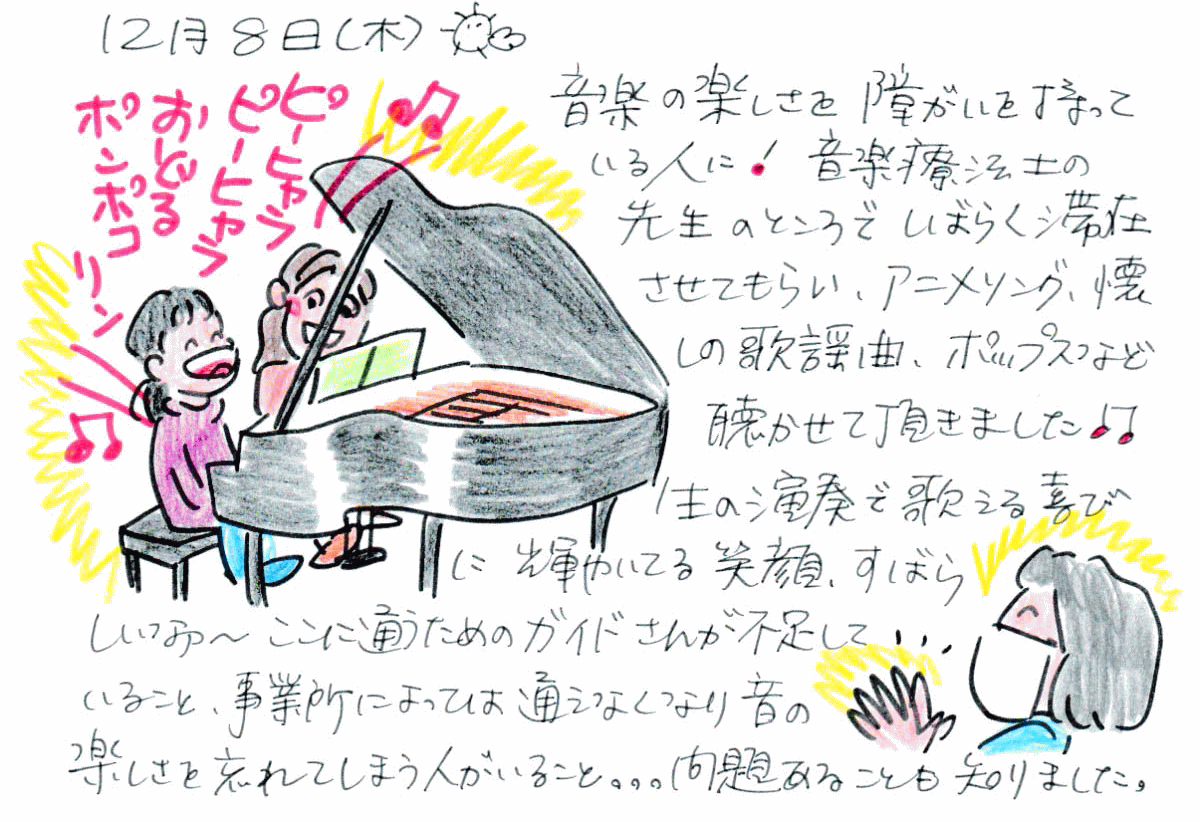 12月8日(木)
ピーヒャラ
ピーヒャラ
おどる
ポンポコ
リン
音楽の楽しさを障がいを持って
いる人に!音楽療法士の
先生のところでしばらく滞在
させてもらい、アニメソング、懐
しの歌謡曲、ポップスなど
聴かせて頂きました♫
生の演奏で歌える喜び
に輝やいてる笑顔、すばら
しいなぁ〜ここに通うためのガイドさんが不足して
いること、事業所によっては通えなくなり音の
楽しさを忘れてしまう人がいること。。。問題あることも知りました。